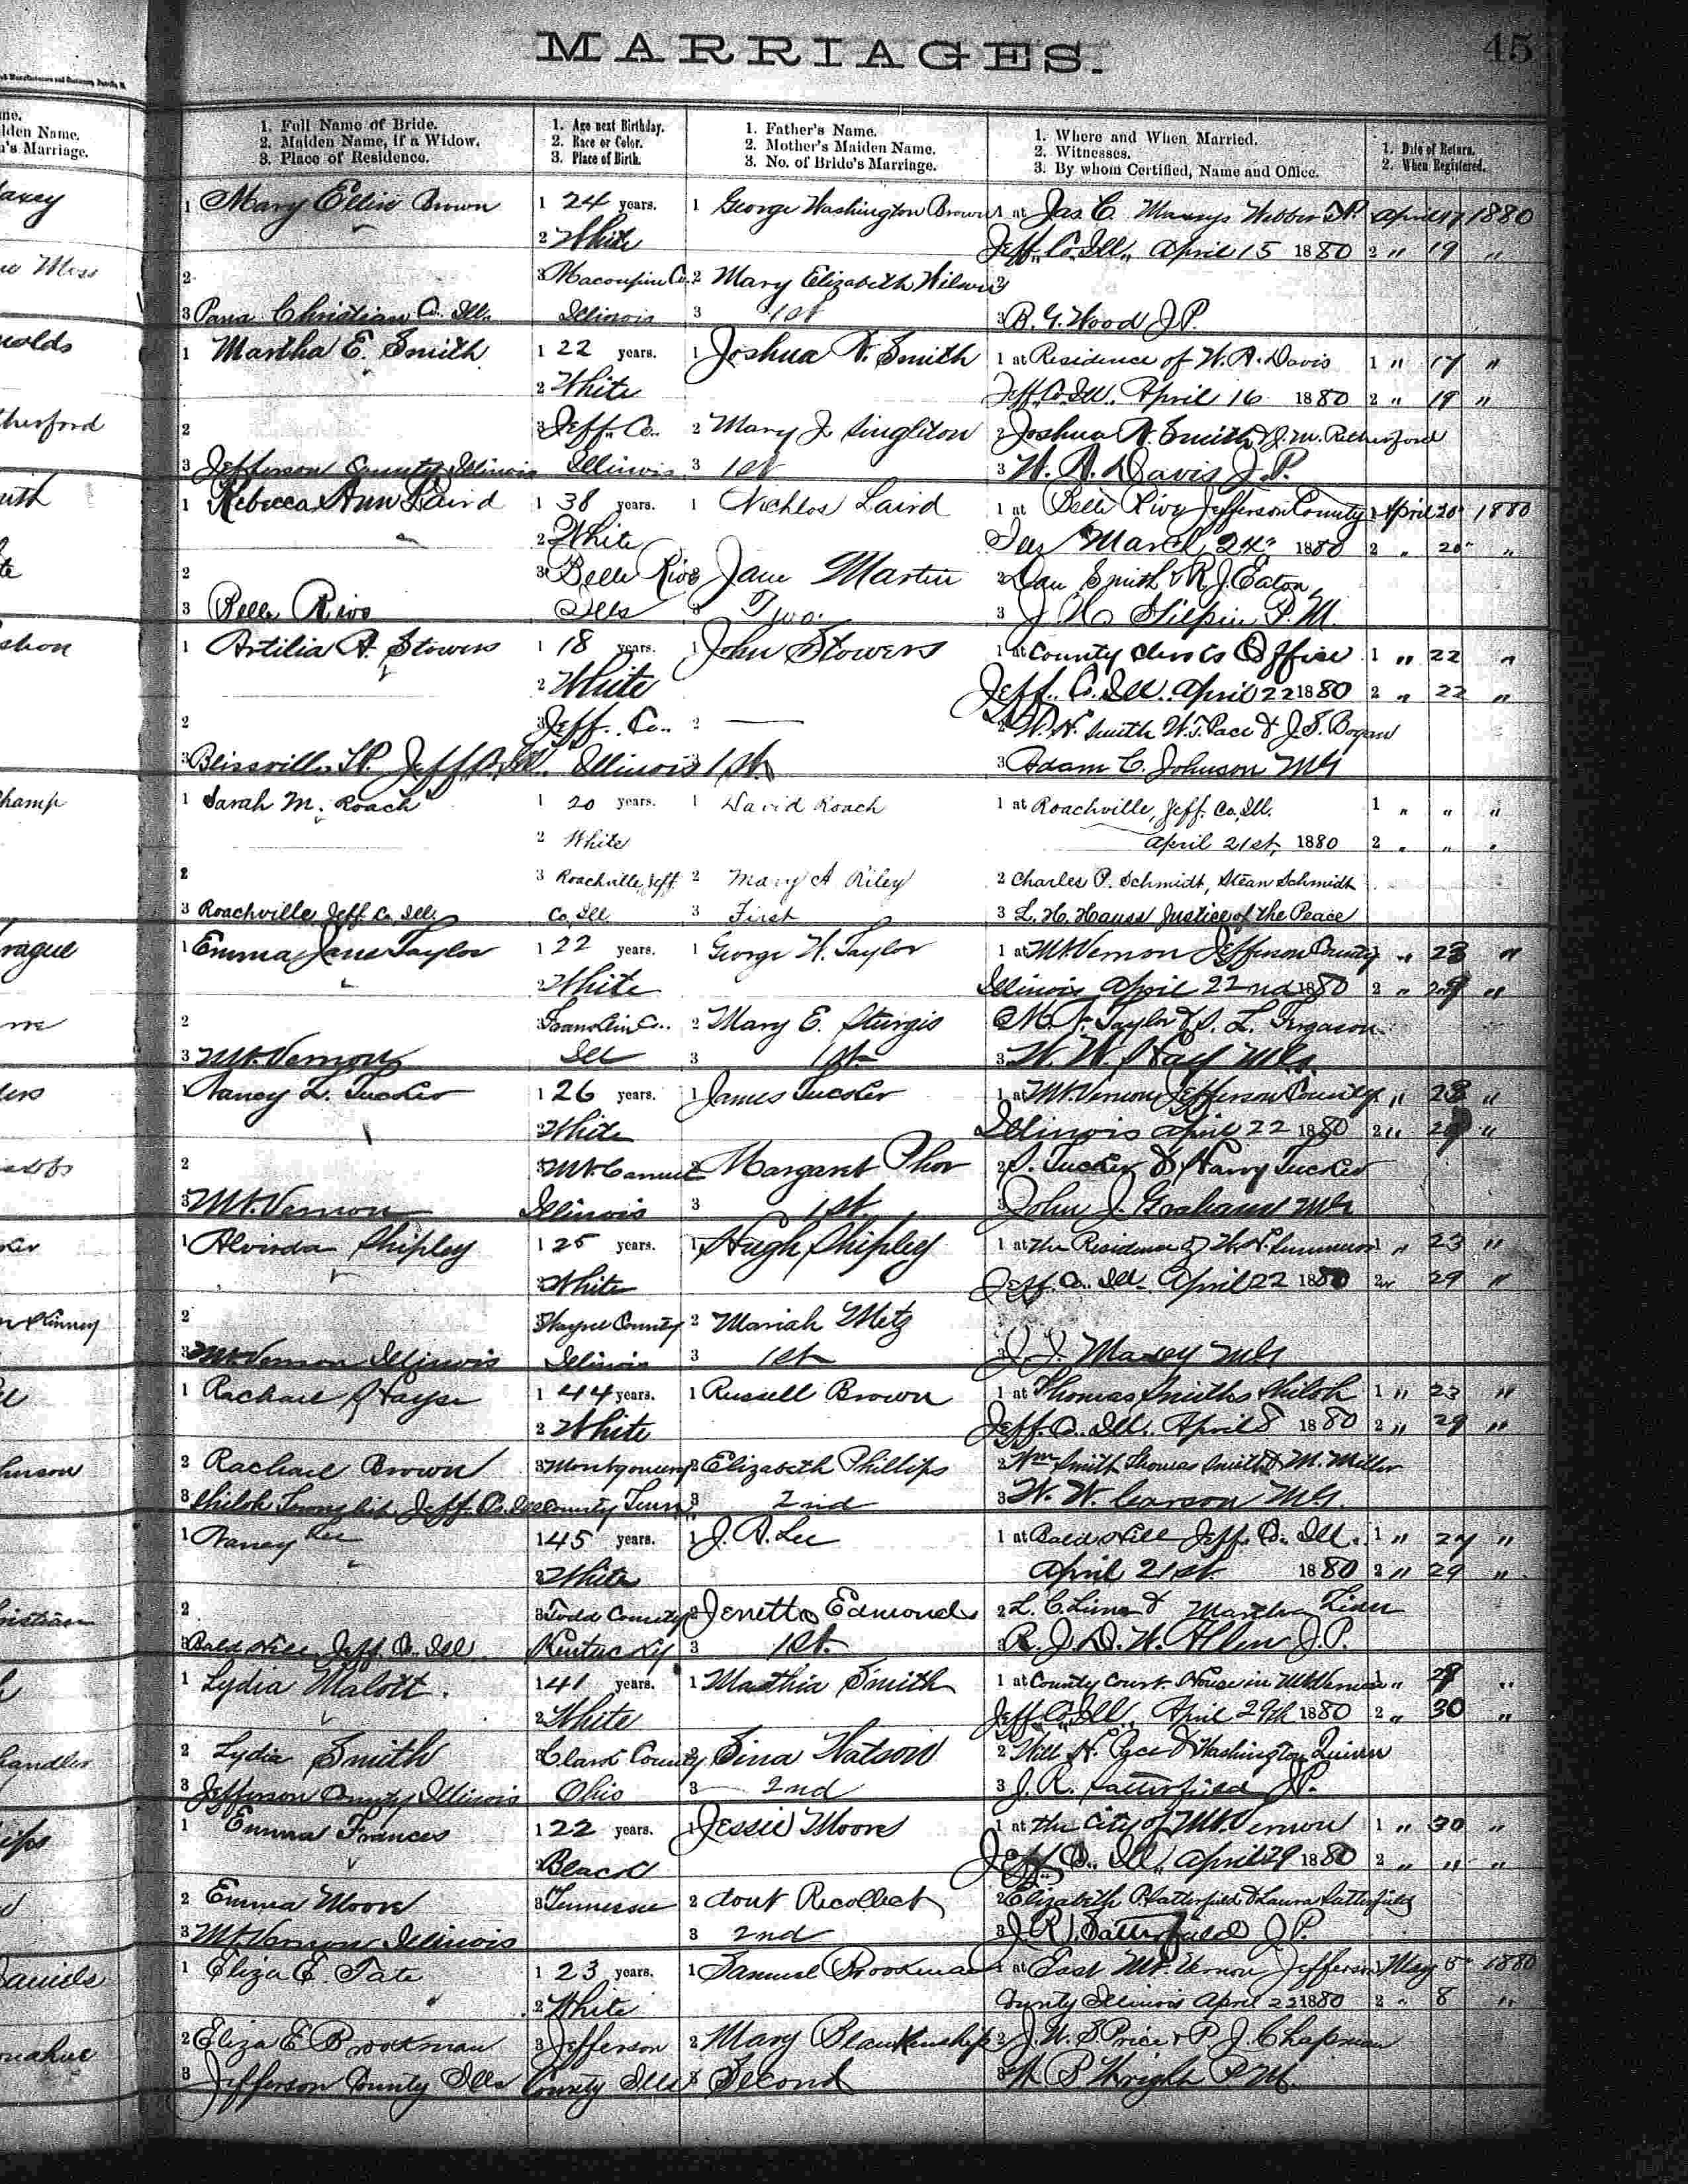 MARRIAGES.
45
1. Full Name of Bride.
2. Maiden Name, if a Widow.
3. Place of Residence.
1. Age next Birthday.
2. Race or Color.
3. Place of Birth.
1. Father's Name.
2. Mother's Maiden Name.
3. No. of Bride's Marriage.
1. Where and When Married.
2. Witnesses.
3. By whom Certified, Name and Office.
1. Date of Return.
2. When Registered.
1 Mary Ellin Brown 1 24 years. 1 George Washington Brown 1 at Jas. C. Maxeys Webber T.P. April 17 1880
2 White Jeff. Co. Ill. April 15 1880 2 " 19 "
2 3 Macoupin Co. 2 Mary Elizabeth 2
3 Pana Christian Co. Ill. Illinois 3 1st 3 B. G. Wood J.P.
1 Martha E. Smith 1 22 years. 1 Joshua N. Smith 1 at Residence of W. A. Davis 1 " 17 "
2 White Jeff. Co. Ill. April 16 1880 2 " 19 "
2 3 Jeff. Co. 2 Mary J. Singleton 2 Joshua N. Smith & J. M. Rutherford
3 Jefferson County Illinois Illinois 3 1st 3 W. A. Davis J.P.
1 Rebecca Ann Laird 1 38 years. 1 Nichlos Laird 1 at Belle Rive Jefferson County 1 April 20 1880
2 White March 24 1880 2 " 20 "
2 3 Belle Rive 2 Jane Martin 2 Dan Smith & R. J. Eaton
3 Belle Rive Ills 3 Two 3 J
1 Artilia A. Stowers 1 18 years. 1 John Stowers 1 at County Clerks Office 1 " 22 "
2 White Jeff. Co. Ill. April 22 1880 2 " 22 "
2 3 Jeff. Co. 2 — 2 W. H. Smith W. T. Pace & J. S. Bogan
3 Blissville T.P. Jeff. Co. Ill. Illinois 3 1st 3 Adam C. Johnson MG
1 Sarah M. Roach 1 20 years. 1 David Roach 1 at Roachville, Jeff. Co. Ill. 1 " " "
2 White April 21st, 1880 2 " " "
2 3 Roachville, Jeff. 2 Mary A Riley 2 Charles P. Schmidt, Stean Schmidt
3 Roachville Jeff. Co. Ill. Co. Ill 3 First 3 L. H. Hauss Justice of the Peace
1 Emma Jane Taylor 1 22 years. 1 George W. Taylor 1 at Mt. Vernon Jefferson County " 23 "
2 White Illinois April 22nd 1880 2 " 29 "
2 3 Franklin Co. 2 Mary E. Sturgis Taylor & S. L. Furgason
3 Mt. Vernon Ill 3 1st 3 W. W. Hay MG.
1 Nancy L. Tucker 1 26 years. 1 James Tucker 1 at Mt. Vernon Jefferson County " 23 "
2 White Illinois April 22 1880 2 " 29 "
2 3 Mt. Carmel 2 Margaret 2 S. Tucker & Harry Tucker
3 Mt. Vernon Illinois 3 1st 3 John J. Graham MG
1 Alvirda Shipley 1 25 years. 1 Hugh Shipley 1 at the Residence of " 23 "
2 White Jeff. Co. Ill. April 22 1880 2 " 29 "
2 3 Wayne County 2 Mariah Metz
3 Mt. Vernon Illinois Illinois 3 1st 3 J. J. Maxey MG
1 Rachael Hayse 1 44 years. 1 Russell Brown 1 at Thomas Smiths Shiloh 1 " 23 "
2 White Jeff. Co. Ill. April 8 1880 2 " 29 "
2 Rachael Brown 3 Montgomery 2 Elizabeth Phillips 2 Wm Smith Thomas Smith & M. Miller
3 Shiloh Township Jeff. Co. Ill County Tenn. 3 2nd 3 W. W. Carson MG.
1 Nancy Lee 1 45 years. 1 J. A. Lee 1 at Bald Hill Jeff. Co. Ill. 1 " 27 "
2 White April 21st 1880 2 " 29 "
2 3 Todd County 2 Jenetta Edmonds 2 L. C. & Martha
3 Bald Hill Jeff. Co. Ill Kentucky 3 1st. 3 R. J. D. W. Allen J.P.
1 Lydia Malott. 1 41 years. 1 Mathia Smith 1 at County Court House in Mt Vernon 1 " 29 "
2 White Jeff. Co. Ill. April 29th 1880 2 " 30 "
2 Lydia Smith 3 Clark County 2 Sina Watson 2 Will H. Pace & Washington Quinn
3 Jefferson County Illinois Ohio 3 2nd 3 J. R. Satterfield J.P.
1 Emma Frances 1 22 years. 1 Jessie Moore 1 at the City of Mt. Vernon 1 " 30 "
2 Black Jeff. Co. Ill. April 29 1880 2 " " "
2 Emma Moore 3 Tennessee 2 dont Recollect 2 Elizabeth Satterfield & Laura Satterfield
3 Mt Vernon Illinois 3 2nd 3 J. R. Satterfield J.P.
1 Eliza E. Tate 1 23 years. 1 Samuel Brookman 1 at East Mt. Vernon Jefferson May 5 1880
2 White County Illinois April 22 1880 2 " 8 "
2 Eliza E Brookman 3 Jefferson 2 Mary Blankenship 2 J. W. S Price & P. J. Chapman
3 Jefferson County Ills County Ills 3 Second 3 Wright